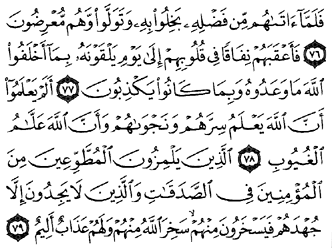 فَلَمَّآ ءَاتَىٰهُم مِّن فَضْلِهِۦ بَخِلُوا۟ بِهِۦ وَتَوَلَّوا۟ وَّهُم مُّعْرِضُونَ
﴿٧٦﴾ فَأَعْقَبَهُمْ نِفَاقًا فِى قُلُوبِهِمْ إِلَىٰ يَوْمِ يَلْقَوْنَهُۥ بِمَآ أَخْلَفُوا۟
ٱللَّهَ مَا وَعَدُوهُ وَبِمَا كَانُوا۟ يَكْذِبُونَ ﴿٧٧﴾ أَلَمْ يَعْلَمُوٓا۟
أَنَّ ٱللَّهَ يَعْلَمُ سِرَّهُمْ وَنَجْوَىٰهُمْ وَأَنَّ ٱللَّهَ عَلَّٰمُ
ٱلْغُيُوبِ ﴿٧٨﴾ ٱلَّذِينَ يَلْمِزُونَ ٱلْمُطَّوِّعِينَ مِنَ
ٱلْمُؤْمِنِينَ فِى ٱلصَّدَقَٰتِ وَٱلَّذِينَ لَا يَجِدُونَ إِلَّا
جُهْدَهُمْ فَيَسْخَرُونَ مِنْهُمْ ۙ سَخِرَ ٱللَّهُ مِنْهُمْ وَلَهُمْ عَذَابٌ أَلِيمٌ ﴿٧٩﴾